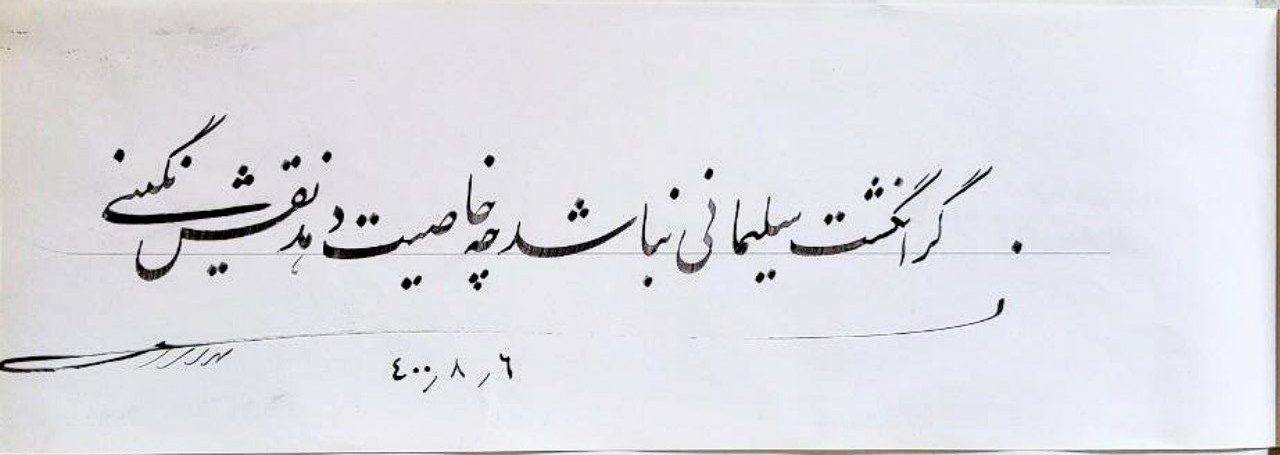 گر انگشت سلیمانی نباشد چه خاصیت دهد نقش نگینی
٤٠٠٫٨٫٦